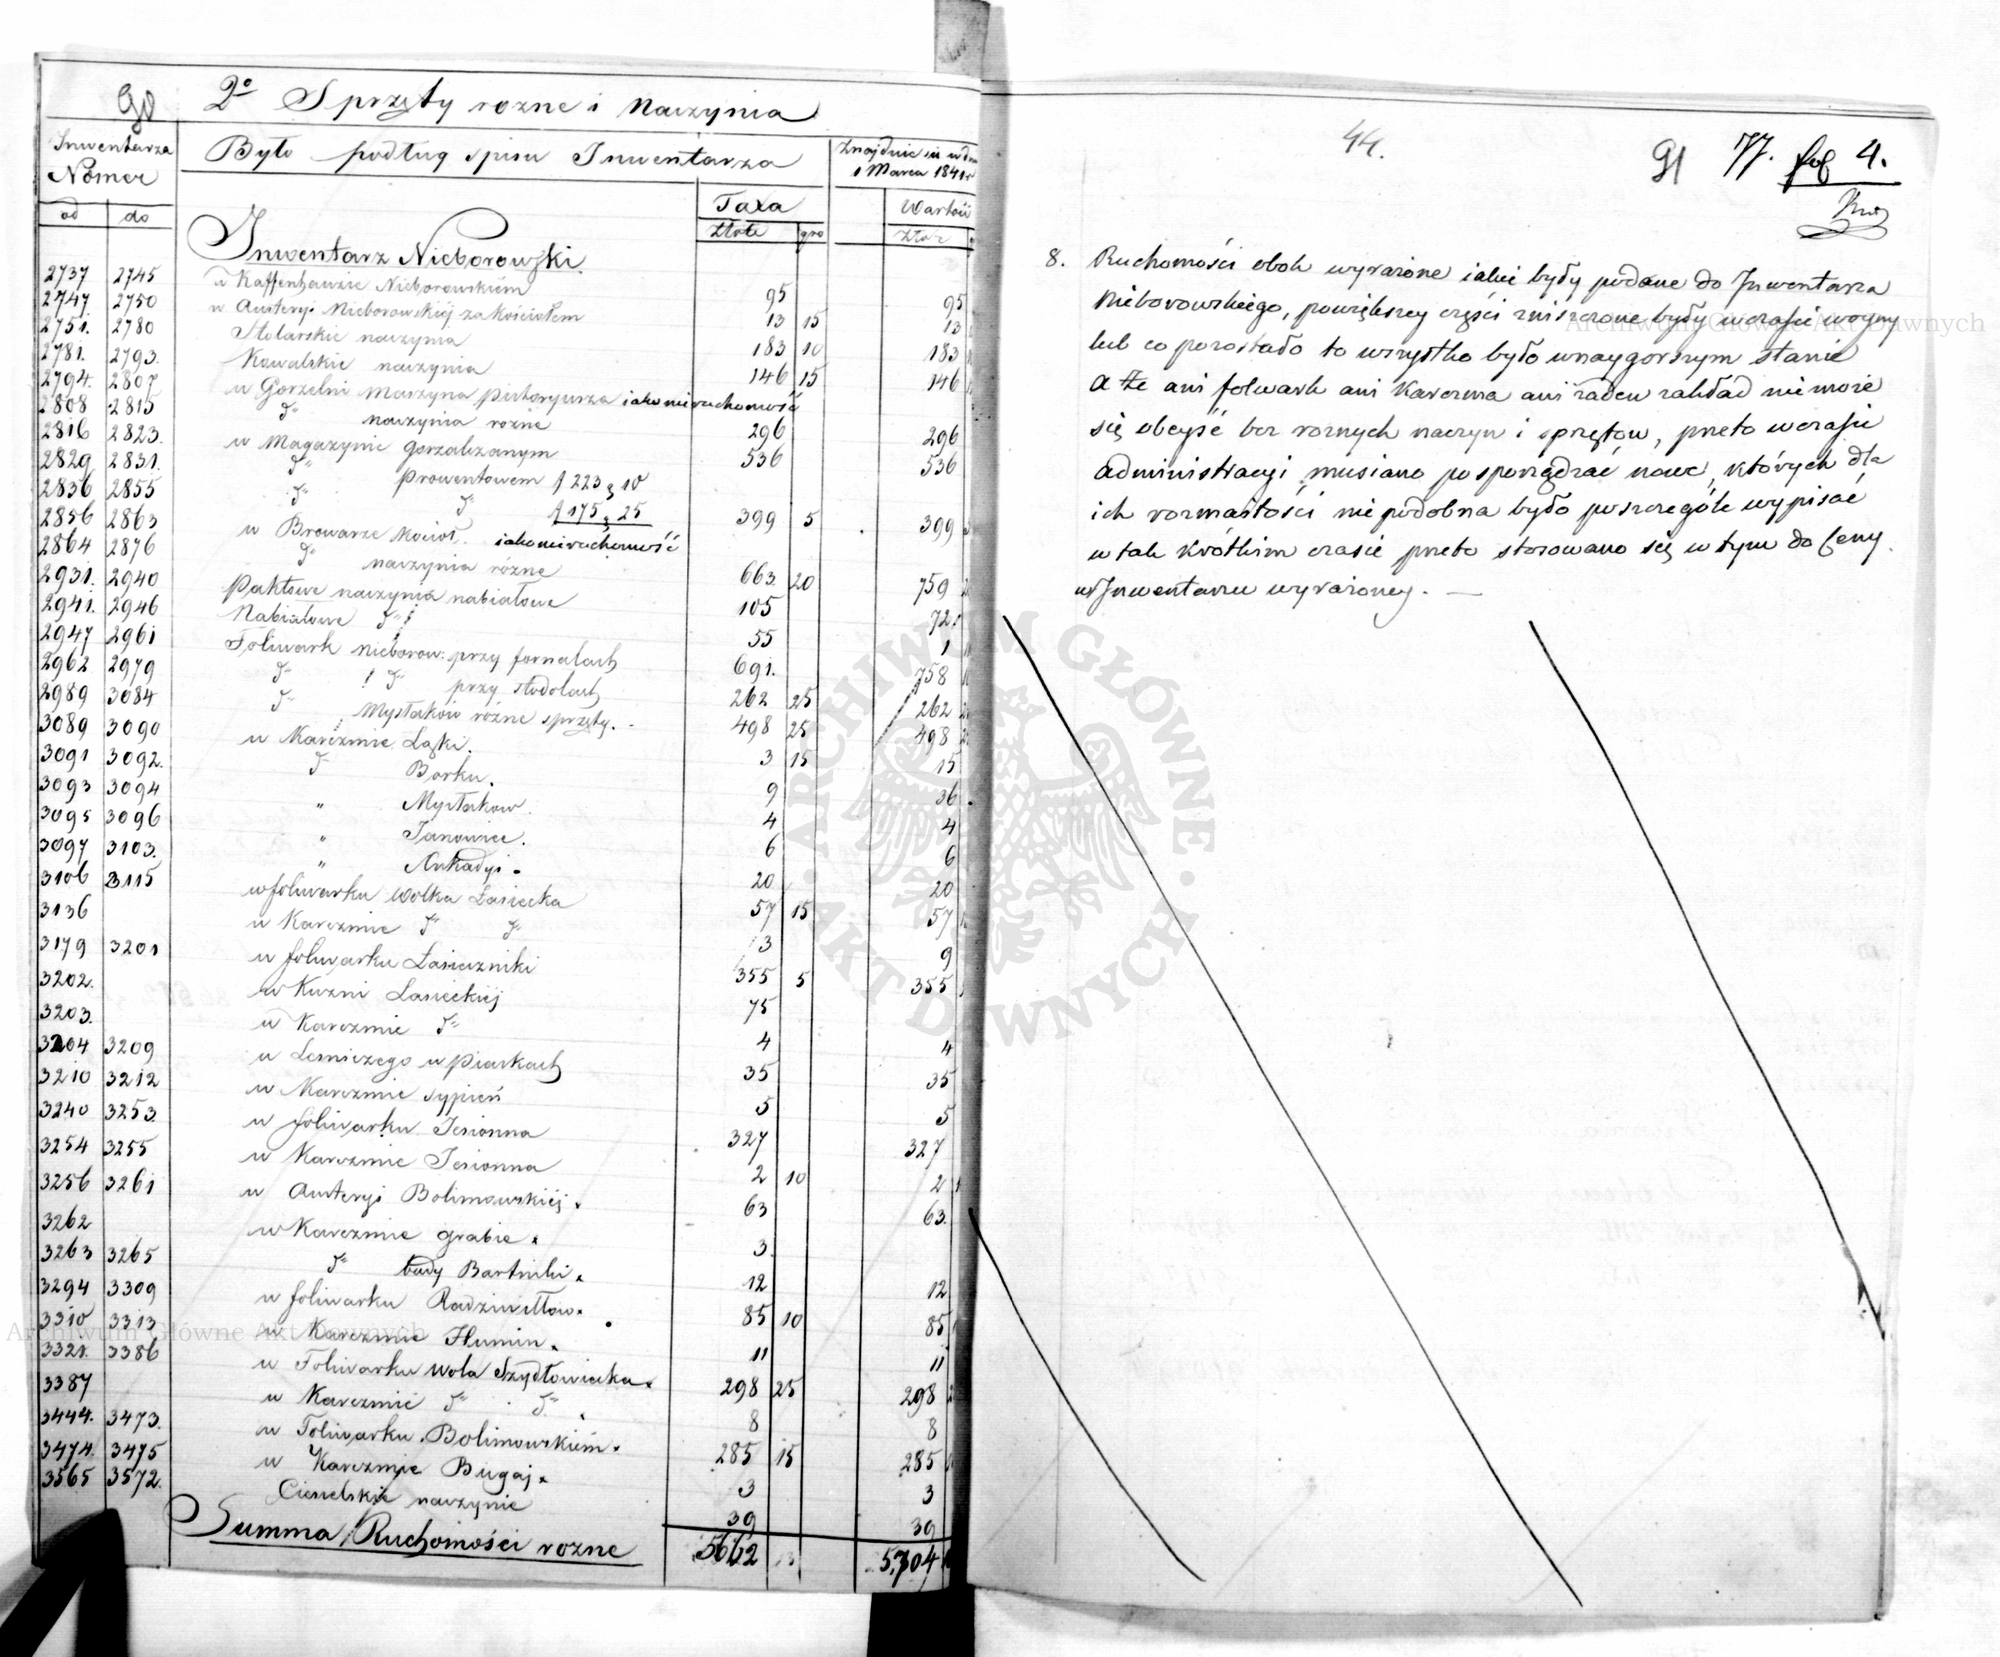 90
2° Sprzęty rozne i Naczynia
Inwentarza Nomer
Było podług spisu Inwentarza
Znajduie się w dniu 1 Marca 1841 r
od do
Taxa
Wartość
złote gro
złote
Inwentarz Nieborowski.
2737 2745 w Kaffenhauzie Nieborowskiem 95 95
2747 2750 w Austeryi Nieborowskiéj za kościołem 13 15 13
2751. 2780 Stolarskie naczynia 183 10 183
2781. 2793. Kowalskie naczynia 146 15 146
2794. 2807 w Gorzelni Maszyna pistoryusza iako nieruchomość
2808 2815 d° naczynia różne 296 296
2816 2823. w Magazynie gorzałczanym 536 536
2829 2831. d° prowentowem f 223 , 10
2836 2855 d° d° f 175 , 25 399 5 399
2856 2863 w Browarze kocioł. iako nieruchomość
2864 2876 d° naczynia różne 663. 20 759
2931. 2940 Paktowe naczynia nabiałowe 105 72
2941. 2946 Nabiałowe d° 55 1
2947 2961 Folwark Nieborow: przy fornalach 691. 758
2962 2979 d° d° przy stodołach 262 25 262
2989 3084 d° Mysłaków różne sprzęty. 498 25 498
3089 3090 w Karczmie Łąki. 3 15 15
3091 3092. d° Borku. 9 36
3093 3094 " Mysłakow. 4 4
3095 3096 " Janowice. 6 6
3097 3103. " Arkadyi. 20 20
3106 3115 w folwarku Wolka Łasiecka 57 15 57
3136 w Karczmie d° d° 3 9
3179 3201 w folwarku Łasieczniki 355 5 355
3202. w Kuzni Łasieckiéj 75
3203. w Karczmie d° 4 4
3204 3209 w Lesniczego w Piaskach 35 35
3210 3212 w Karczmie sypień 5 5
3240 3253. w folwarku Jesionna 327 327
3254 3255 w Karczmie Jesionna 2 10 2
3256 3261 w Austeryi Bolimowskiéj. 63 63.
3262 w Karczmie grabie. 3.
3263 3265 d° budy Bartniki. 12 12
3294 3309 w folwarku Radziwiłłow. 85 10 85
3310 3313 w Karczmie Humin. 11 11
3321. 3386 w Folwarku Wola Szydłowiecka. 298 25 298
3387 w Karczmie d° d° 8 8
3444. 3473. w Folwarku Bolimowskiém. 285 15 285
3474. 3475 w Karczmie Bugaj. 3 3
3565 3572. Ciesielskie naczynie 39 39
Summa Ruchomości rozne 5662 5,704
44.
91 77. fol 4.
8. Ruchomości obok wyrażone iakie były podane do Inwentarza
Nieborowskiego, powiększey części zniszczone były w czasie woyny
lub co pozostało to wszystko było w naygorszym stanie
a że ani folwark ani Karczma ani żaden zakład nie może
się obeyść bez rożnych naczyn i sprzętow, przeto w czasie
administracyi musiano posporządzać nowe, których dla
ich rozmaitości niepodobna było poszczególe wypisać
w tak krótkim czasie przeto stosowano się w tym do Ceny
w Inwentarzu wyrażoney. —
Archiwum Główne Akt Dawnych
Archiwum Główne Akt Dawnych
ARCHIWUM GŁÓWNE · AKT DAWNYCH ·